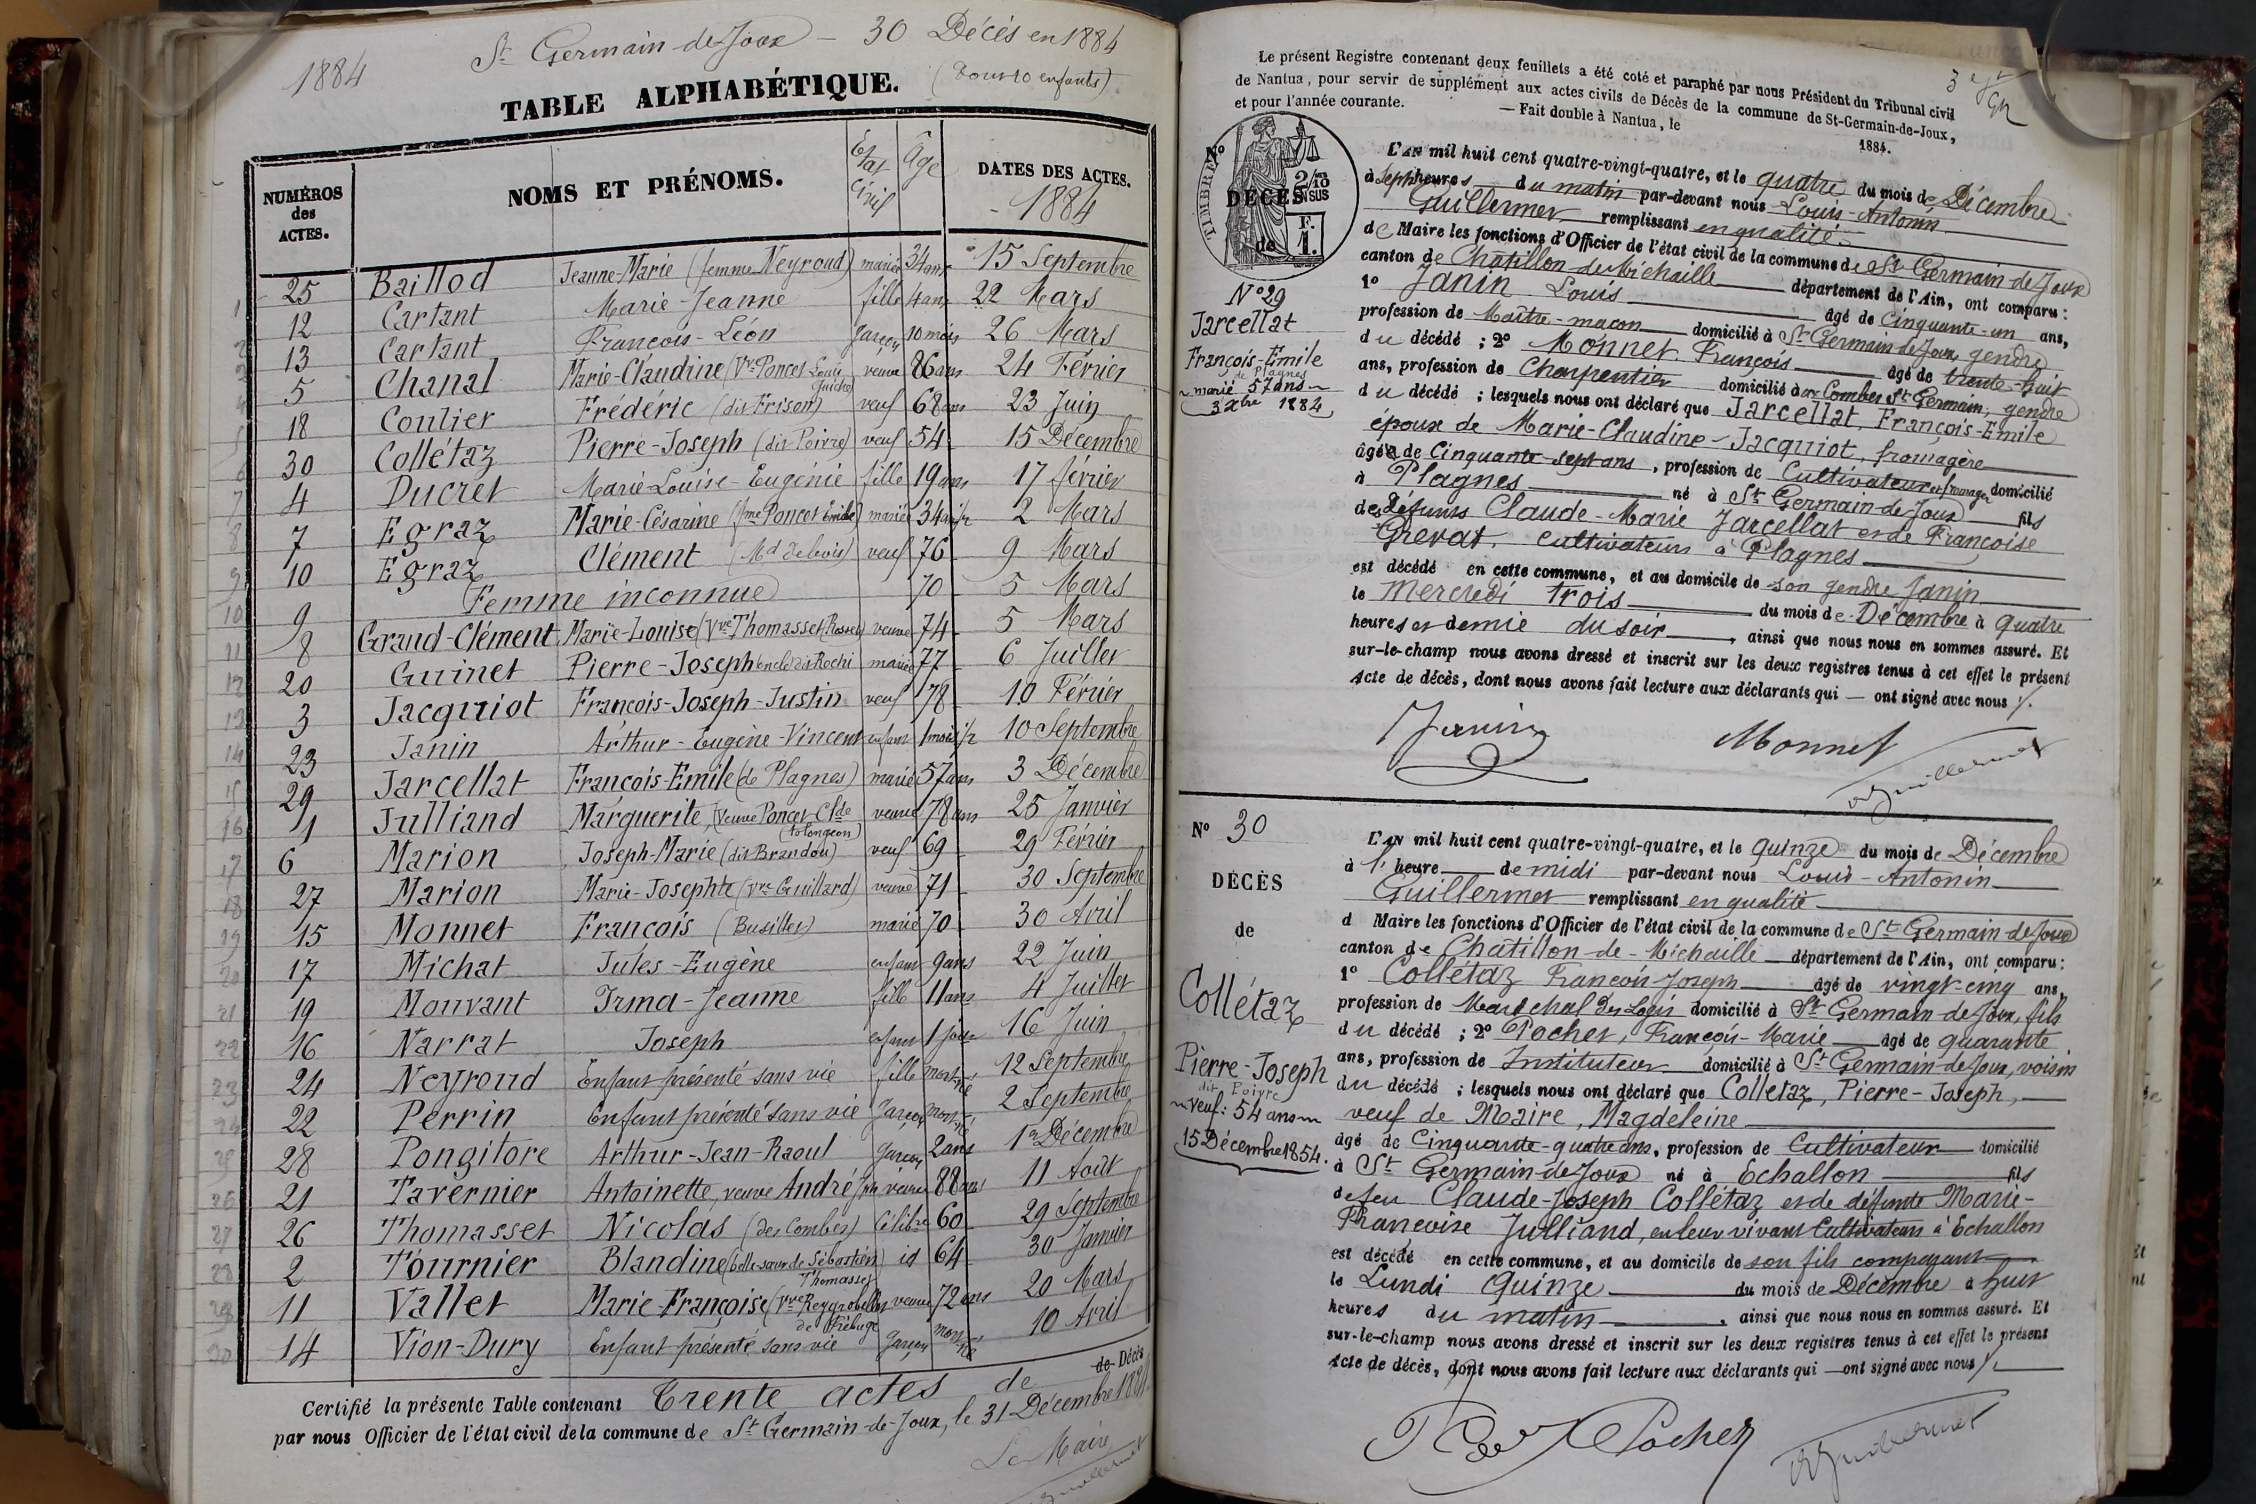 1884
St Germain-de-Joux — 30 Décès en 1884
(Dont 10 enfants)
TABLE ALPHABÉTIQUE.
NUMÉROS des ACTES. NOMS ET PRÉNOMS. Etat civil Âge DATES DES ACTES. 1884
1 25 Baillod Jeanne-Marie (femme Neyroud) mariée 34 ans 15 Septembre
2 12 Cartant Marie-Jeanne fille 4 ans 22 Mars
13 Cartant François-Léon garçon 10 mois 26 Mars
5 Chanal Marie-Claudine (Vve Poncet Louis) veuve 86 ans 24 Février
18 Coulier Frédéric (dit Frison) veuf 68 ans 23 Juin
30 Collétaz Pierre-Joseph (dit Poivre) veuf 54 15 Décembre
4 Ducret Marie-Louise-Eugénie fille 19 ans 17 février
7 Egraz Marie-Césarine (fme Poncet Emile) mariée 34 ans 1/2 2 Mars
10 Egraz Clément (Md de bois) veuf 76 9 Mars
9 Femme inconnue 70 5 Mars
8 Grand-Clément Marie-Louise (Vve Thomasset Rosset) veuve 74 5 Mars
20 Guinet Pierre-Joseph marié 77 6 Juillet
3 Jacquiot François-Joseph-Justin veuf 78 10 Février
23 Janin Arthur-Eugène-Vincent enfant 1 mois 1/2 10 Septembre
29 Jarcellat François-Emile (de Plagnes) marié 57 ans 3 Décembre
1 Julliand Marguerite, (veuve Poncet Clde tolongeon) veuve 78 ans 25 Janvier
6 Marion Joseph-Marie (dit Brandon) veuf 69 29 Février
27 Marion Marie-Josephte (Vve Guillard) veuve 71 30 Septembre
15 Monnet François (Busillet) marié 70 30 Avril
17 Michat Jules-Eugène enfant 9 ans 22 Juin
19 Mouvant Irma-Jeanne fille 11 ans 4 Juillet
16 Narrat Joseph enfant 1 jour 16 Juin
24 Neyroud Enfant présenté sans vie fille mort-né 12 Septembre
22 Perrin Enfant présenté sans vie garçon mort-né 2 Septembre
28 Pongitore Arthur-Jean-Raoul garçon 2 ans 1er Décembre
21 Tavernier Antoinette, veuve André Jph veuve 88 ans 11 Août
26 Thomasset Nicolas (des Combes) Célibre 60 29 Septembre
2 Tournier Blandine (belle-sœur de Sébastien Thomasset) id 64 30 Janvier
11 Vallet Marie-Françoise (Vve Reygrobellet de Trébuge) veuve 72 ans 20 Mars
14 Vion-Dury Enfant présenté sans vie garçon mort-né 10 Avril
Certifié la présente Table contenant Trente actes de de Décès
par nous Officier de l'état civil de la commune de St Germain-de-Joux, le 31 Décembre 1884.
Le Maire
Le présent Registre contenant deux feuillets a été coté et paraphé par nous Président du Tribunal civil
de Nantua, pour servir de supplément aux actes civils de Décès de la commune de St-Germain-de-Joux,
et pour l'année courante. — Fait double à Nantua, le 1884.
No
TIMBRE
DÉCÈS
2/10 EN SUS
F. 1.
de
No 29
Jarcellat
François-Emile
de Plagnes
marié 57 ans
3 Xbre 1884
L'AN mil huit cent quatre-vingt-quatre, et le quatre du mois de Décembre
à Sept heures du matin par-devant nous Louis-Antonin
Guillermet remplissant en qualité
de Maire les fonctions d'Officier de l'état civil de la commune de St Germain-de-Joux
canton de Chatillon-de-Michaille département de l'Ain, ont comparu :
1o Janin Louis âgé de Cinquante-un ans,
profession de Maître-maçon domicilié à St Germain-de-Joux gendre
du décédé ; 2o Monnet François âgé de trente-huit
ans, profession de Charpentier domicilié aux Combes St Germain, gendre
du décédé ; lesquels nous ont déclaré que Jarcellat, François-Emile
époux de Marie-Claudine-Jacquiot, fromagère
âgé de Cinquante-sept ans, profession de Cultivateur et fromager domicilié
à Plagnes né à St Germain-de-Joux fils
des Défunts Claude-Marie Jarcellat et de Françoise
Grevat, cultivateurs à Plagnes
est décédé en cette commune, et au domicile de son gendre Janin
le Mercredi trois du mois de Décembre à quatre
heures et demie du soir, ainsi que nous nous en sommes assuré. Et
sur-le-champ nous avons dressé et inscrit sur les deux registres tenus à cet effet le présent
Acte de décès, dont nous avons fait lecture aux déclarants qui — ont signé avec nous
Janin Monnet
Guillermet
No 30
DÉCÈS
de
Collétaz
Pierre-Joseph
dit Poivre
veuf : 54 ans
15 Décembre 1854.
L'AN mil huit cent quatre-vingt-quatre, et le quinze du mois de Décembre
à 1' heure de midi par-devant nous Louis-Antonin
Guillermet remplissant en qualité
d Maire les fonctions d'Officier de l'état civil de la commune de St Germain-de-Joux
canton de Chatillon-de-Michaille département de l'Ain, ont comparu :
1o Collétaz François Joseph âgé de vingt-cinq ans,
profession de Maréchal des Logis domicilié à St Germain-de-Joux, fils
du décédé ; 2o Pochet, François-Marie âgé de quarante
ans, profession de Instituteur domicilié à St Germain-de-Joux, voisin
du décédé ; lesquels nous ont déclaré que Collétaz, Pierre-Joseph,
veuf de Maire, Magdeleine
âgé de Cinquante-quatre ans, profession de Cultivateur domicilié
à St Germain-de-Joux né à Echallon fils
de feu Claude-Joseph Collétaz et de défunte Marie-
Françoise Julliand, en leur vivant Cultivateurs à Echallon
est décédé en cette commune, et au domicile de son fils comparant
le Lundi Quinze du mois de Décembre à huit
heures du matin, ainsi que nous nous en sommes assuré. Et
sur-le-champ nous avons dressé et inscrit sur les deux registres tenus à cet effet le présent
Acte de décès, dont nous avons fait lecture aux déclarants qui — ont signé avec nous
Pochet Guillermet